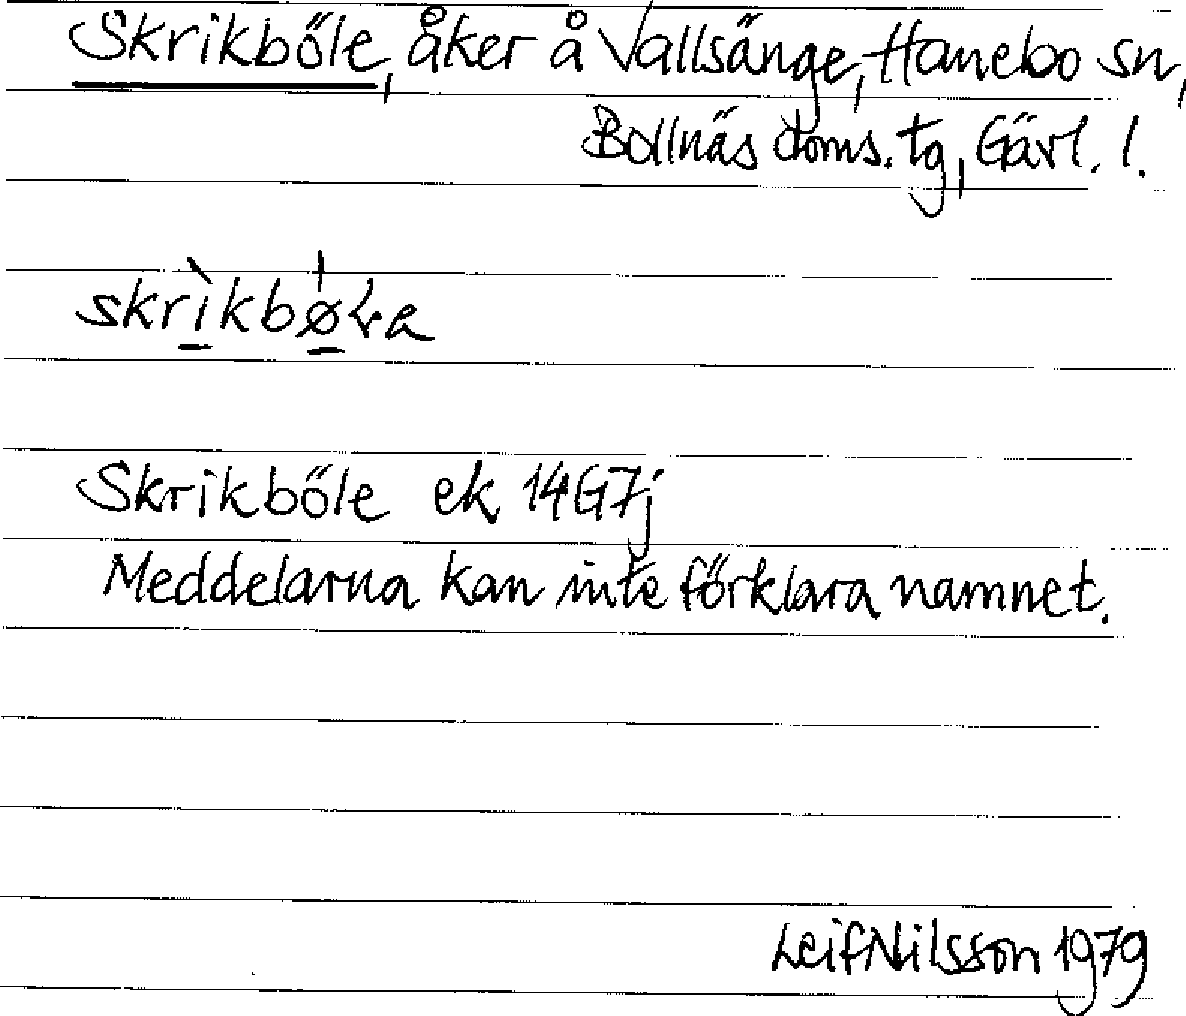 Skrikböle, åker å Vallsänge, Hanebo sn,
Bollnäs doms. tg, Gävl. l.
skrìkbøLa
Skrikböle ek 14G7j
Meddelarna kan inte förklara namnet.
Leif Nilsson 1979